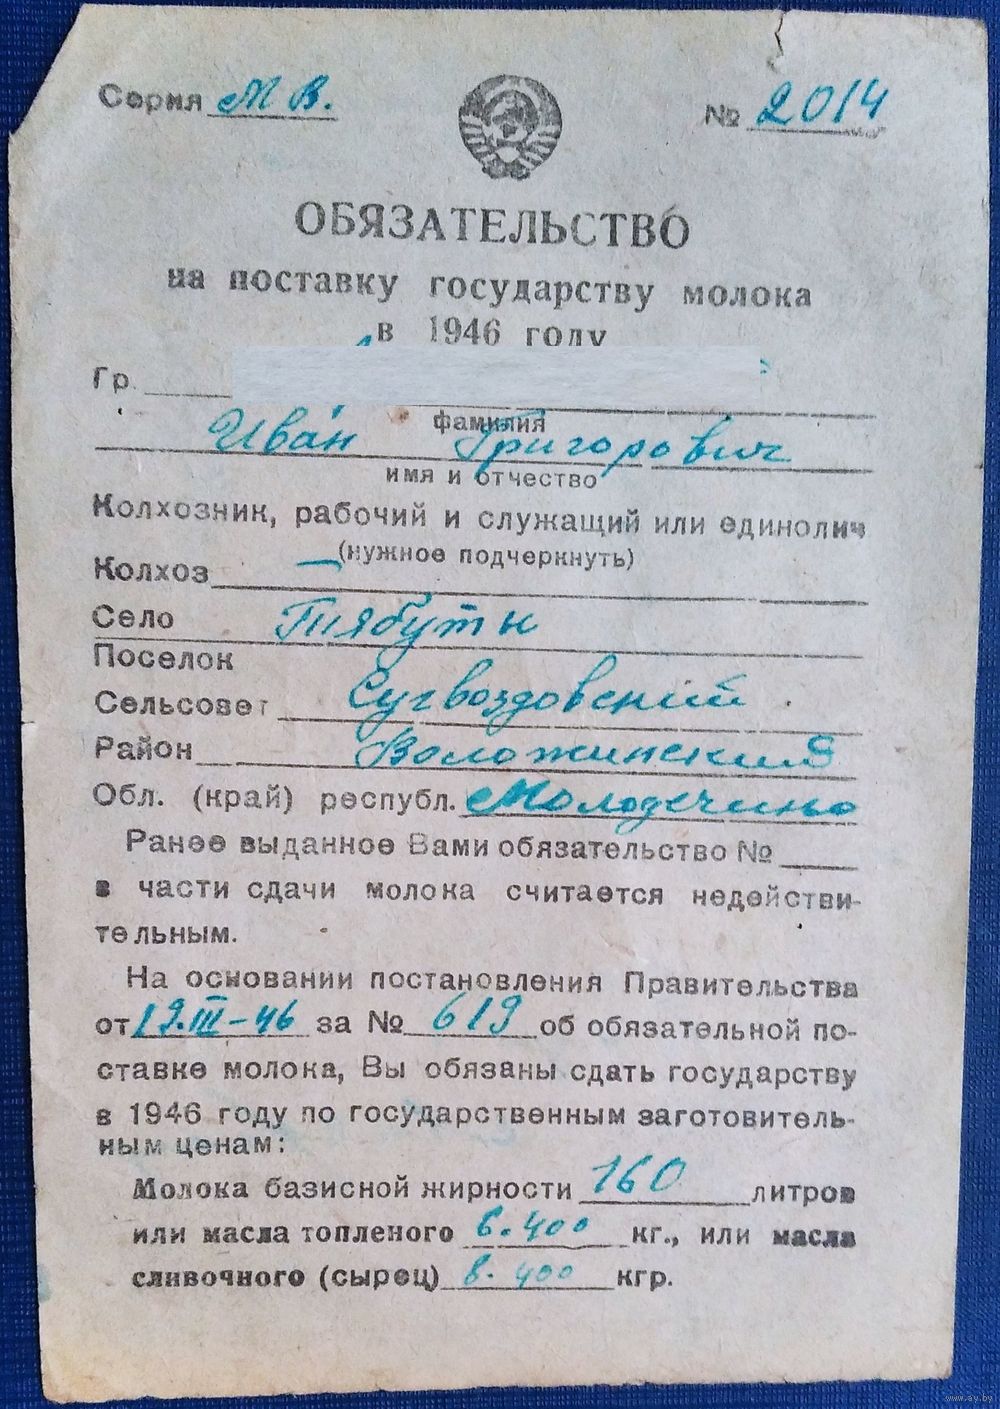 Серия М В. № 2014
ОБЯЗАТЕЛЬСТВО
на поставку государству молока
в 1946 году
Гр.
фамилия
Иван Григорович
имя и отчество
Колхозник, рабочий и служащий или единолич
(нужное подчеркнуть)
Колхоз —
Село Тябуты
Поселок
Сельсовет Сугвоздовский
Район Воложинский
Обл. (край) республ. Молодечино
Ранее выданное Вами обязательство №
в части сдачи молока считается недействи-
тельным.
На основании постановления Правительства
от 19.III-46 за № 619 об обязательной по-
ставке молока, Вы обязаны сдать государству
в 1946 году по государственным заготовитель-
ным ценам:
Молока базисной жирности 160 литров
или масла топленого 6.400 кг., или масла
сливочного (сырец) 8.400 кгр.
www.ay.by